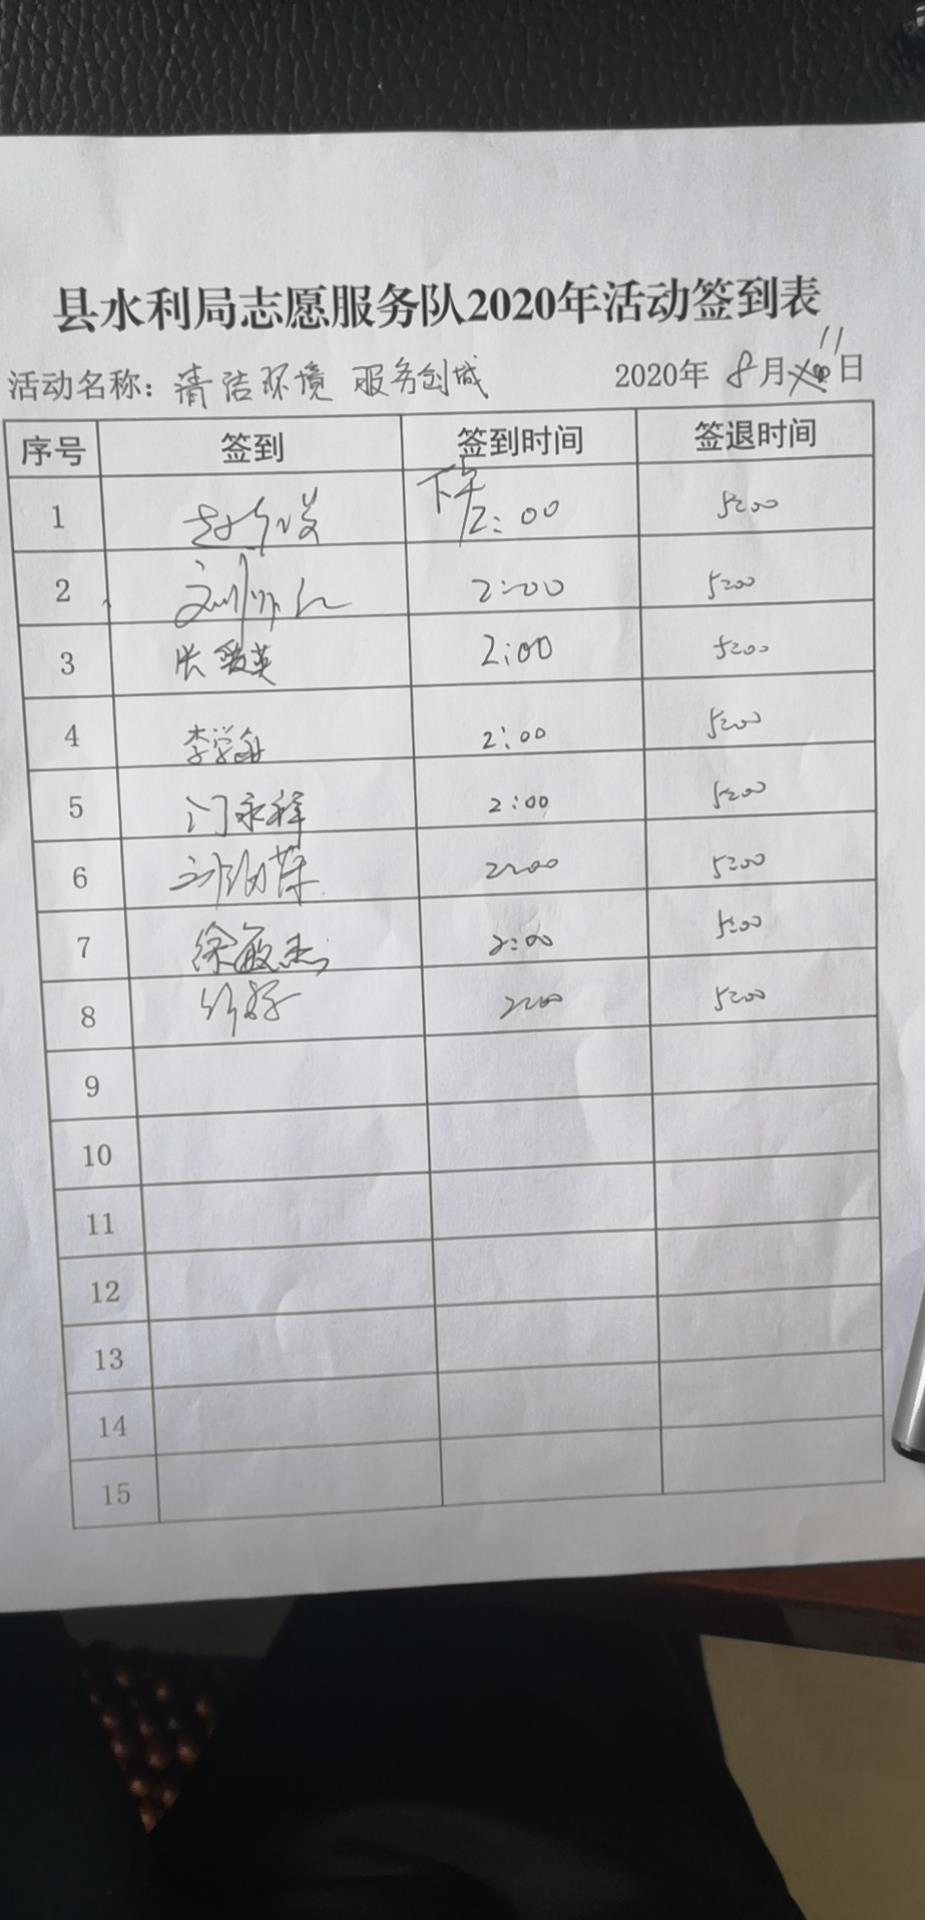 县水利局志愿服务队2020年活动签到表
活动名称：清洁环境 服务创城 2020年 8月 11日
序号 签到 签到时间 签退时间
1 下午 2:00 5:00
2 2:00 5:00
3 张爱英 2:00 5:00
4 李学 2:00 5:00
5 门永祥 2:00 5:00
6 2:00 5:00
7 徐敏杰 2:00 5:00
8 2:00 5:00
9
10
11
12
13
14
15